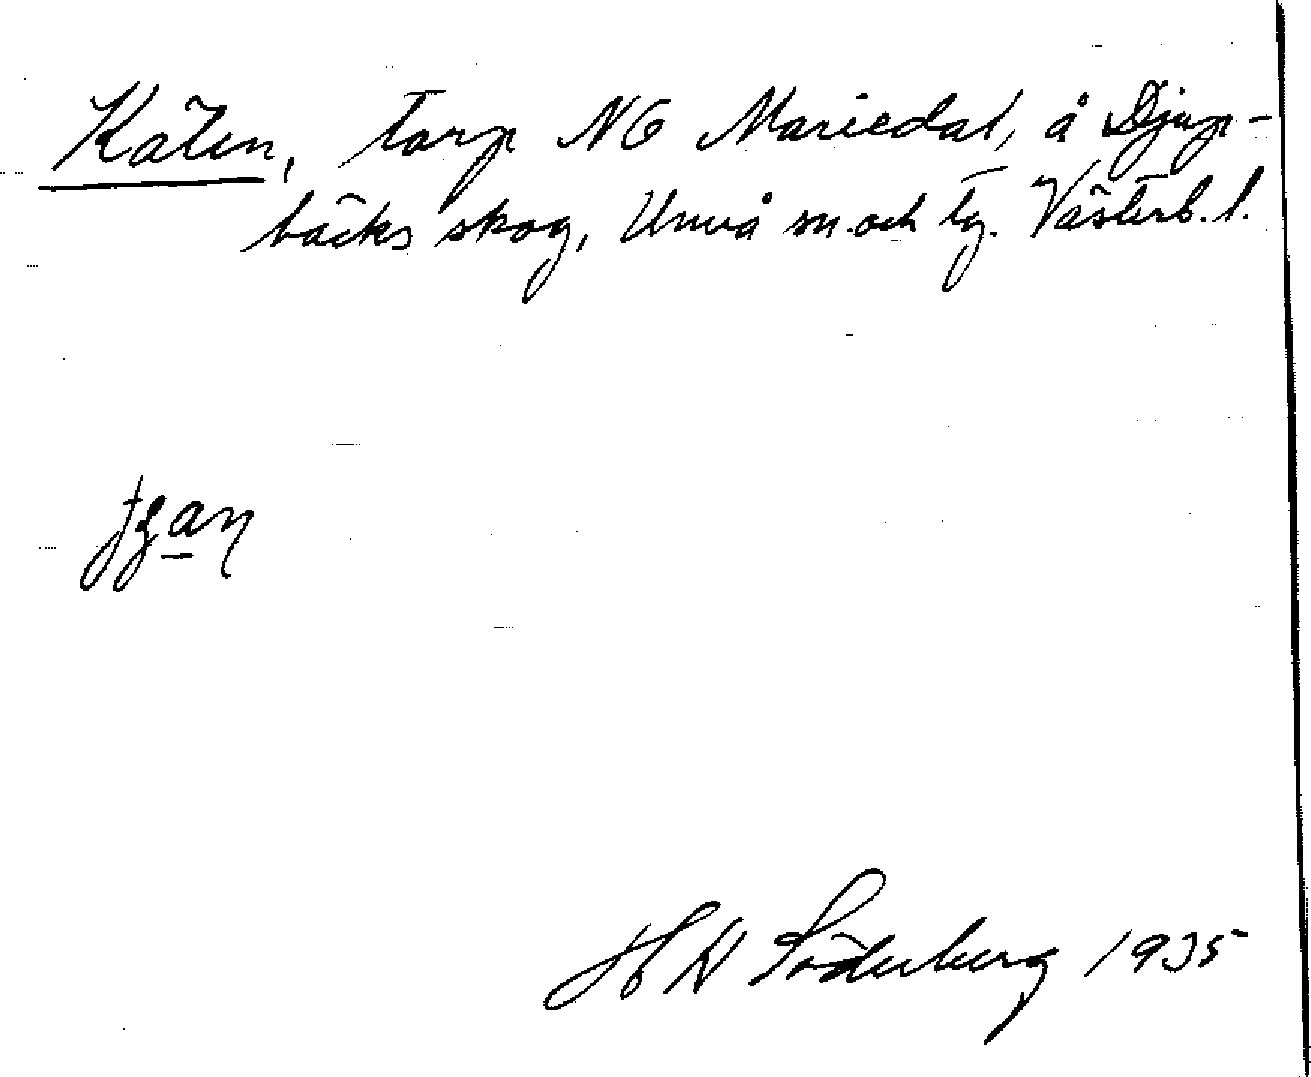 Käten, torp NO Mariedal, å Djup-
bäcks skog, Umeå sn. och tg. Västerb. l.
Söderberg 1935